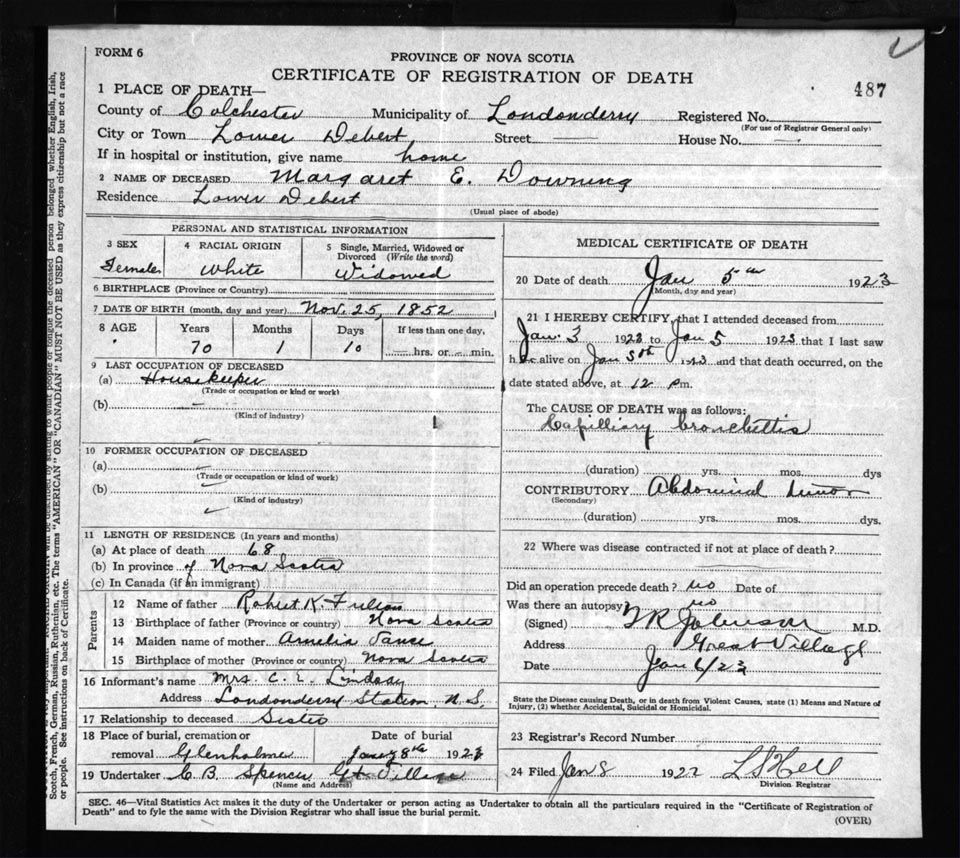 FORM 6
PROVINCE OF NOVA SCOTIA
CERTIFICATE OF REGISTRATION OF DEATH
487
1 PLACE OF DEATH—
County of Colchester Municipality of Londonderry Registered No.
(For use of Registrar General only)
City or Town Lower Debert Street — House No. —
If in hospital or institution, give name home
2 NAME OF DECEASED Margaret E. Downing
Residence Lower Debert
(Usual place of abode)
PERSONAL AND STATISTICAL INFORMATION
3 SEX 4 RACIAL ORIGIN 5 Single, Married, Widowed or
Divorced (Write the word)
Female White Widowed
6 BIRTHPLACE (Province or Country)
7 DATE OF BIRTH (month, day and year) Nov. 25, 1852
8 AGE Years Months Days If less than one day,
70 1 10 hrs. or min.
9 LAST OCCUPATION OF DECEASED
(a) Housekeeper
(Trade or occupation or kind or work)
(b)
(Kind of industry)
10 FORMER OCCUPATION OF DECEASED
(a)
(Trade or occupation or kind of work)
(b)
(Kind of industry)
11 LENGTH OF RESIDENCE (In years and months)
(a) At place of death 68
(b) In province of Nova Scotia
(c) In Canada (if an immigrant)
Parents
12 Name of father Robert K. Fulton
13 Birthplace of father (Province or country) Nova Scotia
14 Maiden name of mother Amelia Vance
15 Birthplace of mother (Province or country) Nova Scotia
16 Informant's name Mrs. C. E. Lindsay
Address Londonderry Station, N.S.
17 Relationship to deceased Sister
18 Place of burial, cremation or Date of burial
removal Glenholme Jany 8th 1923
19 Undertaker C. B. Spencer Gt. Village
(Name and Address)
MEDICAL CERTIFICATE OF DEATH
20 Date of death Jan 5th 1923
(Month, day and year)
21 I HEREBY CERTIFY, that I attended deceased from
Jan. 3 1923 to Jan 5 1923 that I last saw
h alive on Jan 5th 1923 and that death occurred, on the
date stated above, at 12 pm.
The CAUSE OF DEATH was as follows:
Capilliary bronchittis
(duration) yrs. mos. dys
CONTRIBUTORY Abdominal tumor
(Secondary)
(duration) yrs. mos. dys.
22 Where was disease contracted if not at place of death?
Did an operation precede death? no Date of
Was there an autopsy no
(Signed) Johnson M.D.
Address Great Village
Date Jan 6/23
State the Disease causing Death, or in death from Violent Causes, state (1) Means and Nature of
Injury, (2) whether Accidental, Suicidal or Homicidal.
23 Registrar's Record Number
24 Filed Jan 8 1922
Division Registrar
SEC. 46—Vital Statistics Act makes it the duty of the Undertaker or person acting as Undertaker to obtain all the particulars required in the "Certificate of Registration of
Death" and to fyle the same with the Division Registrar who shall issue the burial permit.
(OVER)
Scotch, French, German, Russian, Ruthenian, etc. The terms "AMERICAN" OR "CANADIAN" MUST NOT BE USED as they express citizenship but not a race
or people. See instructions on back of Certificate.